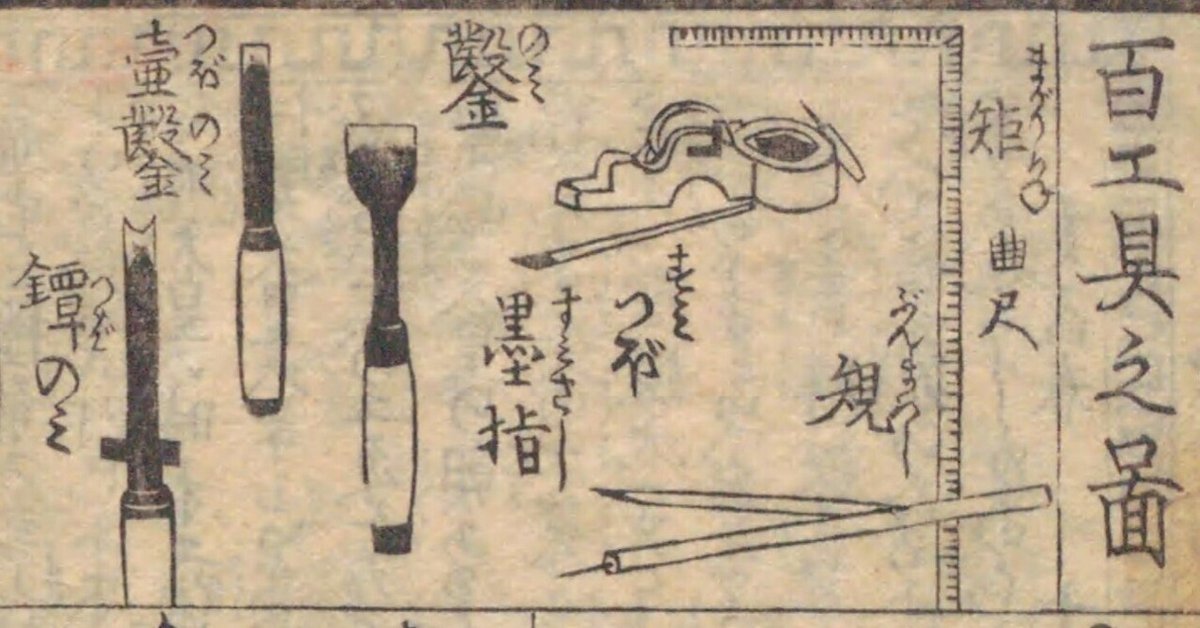 百工具之圖
まがりがね
矩
曲尺
ぶんまわし
規
すみ
つぼ
すみさし
墨指
のミ
鑿
つぼのミ
壷鑿
つば
鐔のミ